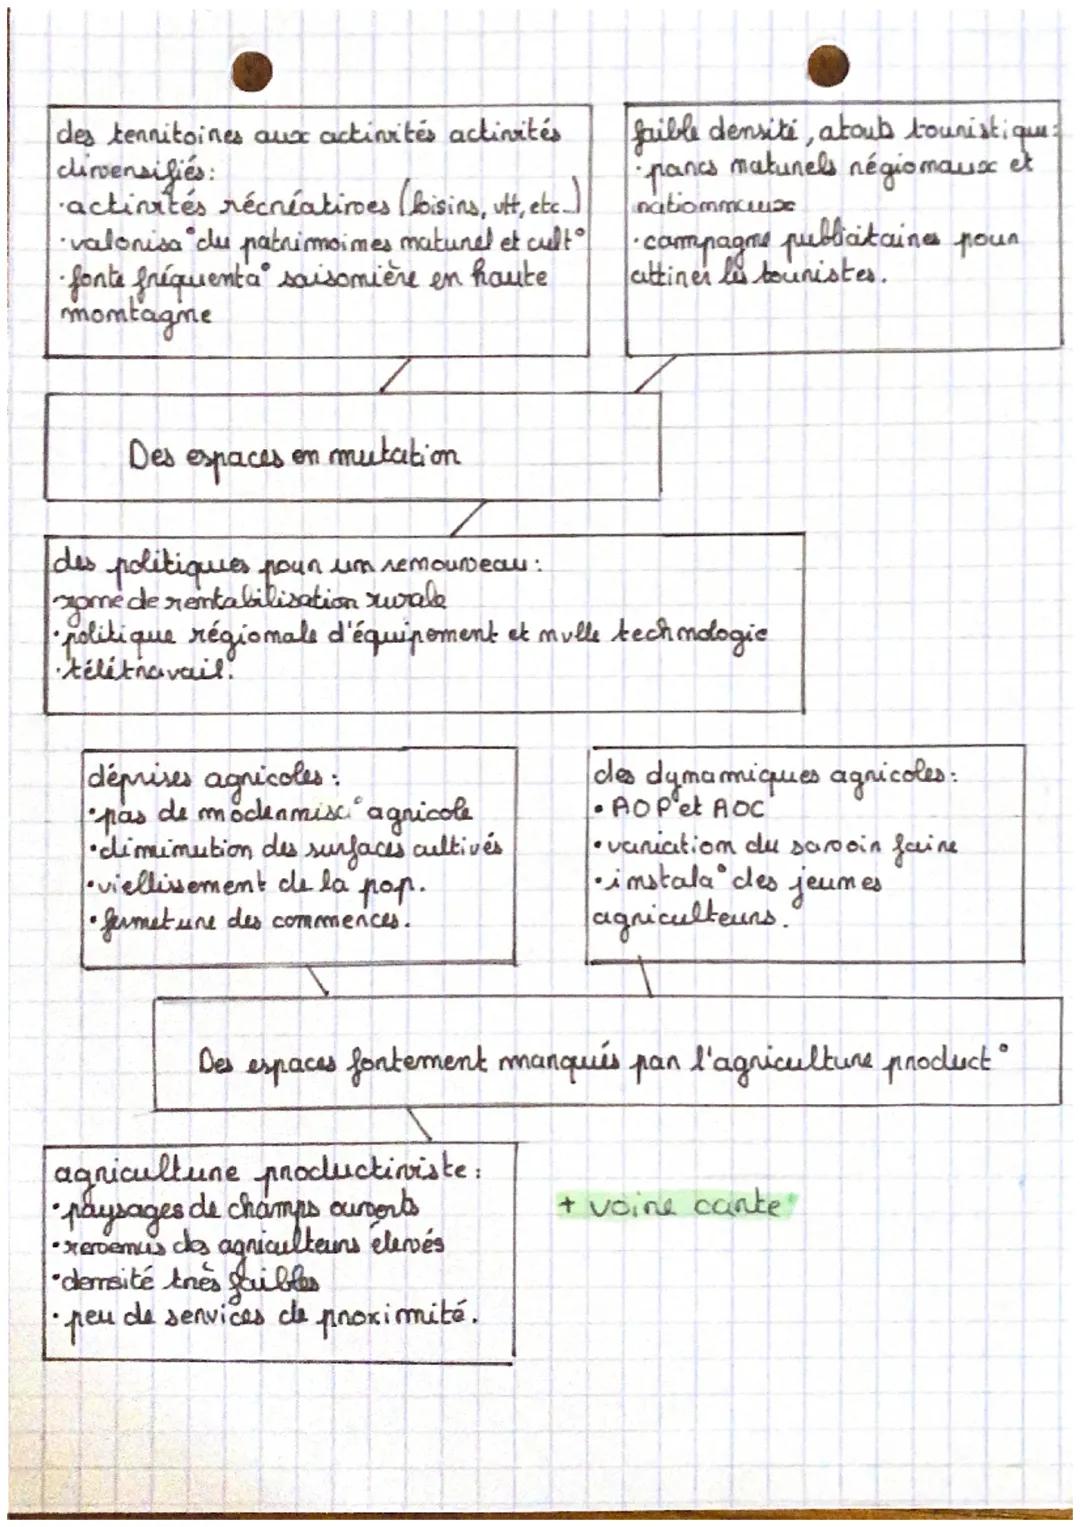 des territoires aux activités activités
diversifiés:
·activités récréatives (loisirs, vtt, etc..)
·valorisa° du patrimoines naturel et cult°
·forte fréquenta° saisonière en haute
montagne
faible densité, atouts touristique:
·parcs naturels régionaux et
nationnaux
·campagne publicitaires pour
attirer les touristes.
Des espaces en mutation
des politiques pour un renouveau:
·zone de rentabilisation rurale
·politique régionale d'équipement et nvlle technologie
·télétravail.
déprises agricoles:
·pas de modernisa° agricole
·diminution des surfaces cultivés
·viellissement de la pop.
·fermeture des commerces.
des dynamiques agricoles:
·AOP et AOC
·variation du savoir faire
·instala° des jeunes
agriculteurs.
Des espaces fortement marqués par l'agriculture product°
agriculture productiviste:
·paysages de champs ouverts
·revenus des agriculteurs élevés
·densité très faibles
·peu de services de proximité.
+ voire carte